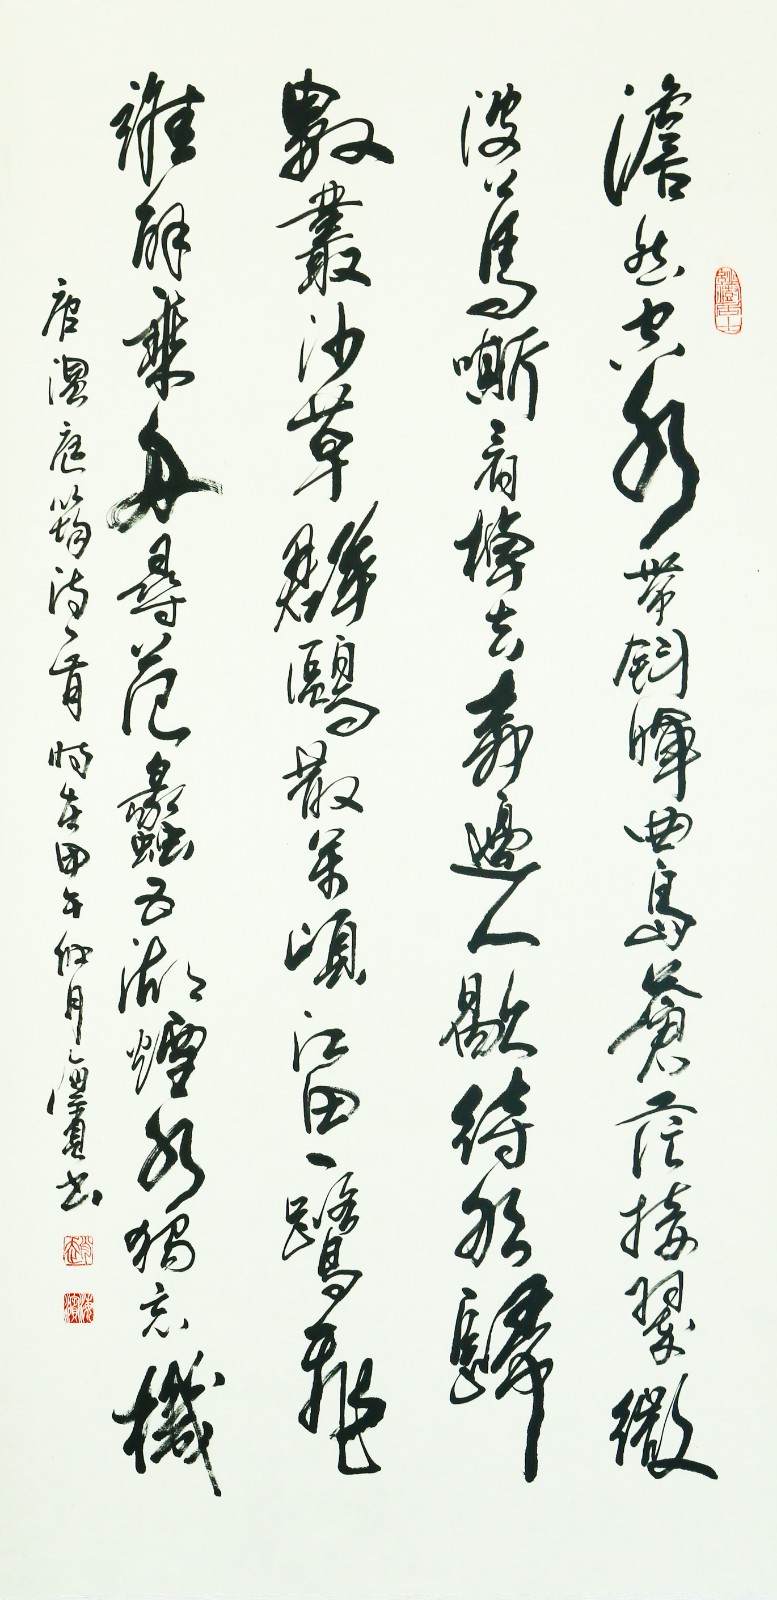 澹然空水帶斜暉曲島蒼茫接翠微
波上馬嘶看棹去柳邊人歇待船歸
數叢沙草群鷗散萬頃江田一鷺飛
誰解乘舟尋范蠡五湖煙水獨忘機
唐溫庭筠詩一首時在甲午月書